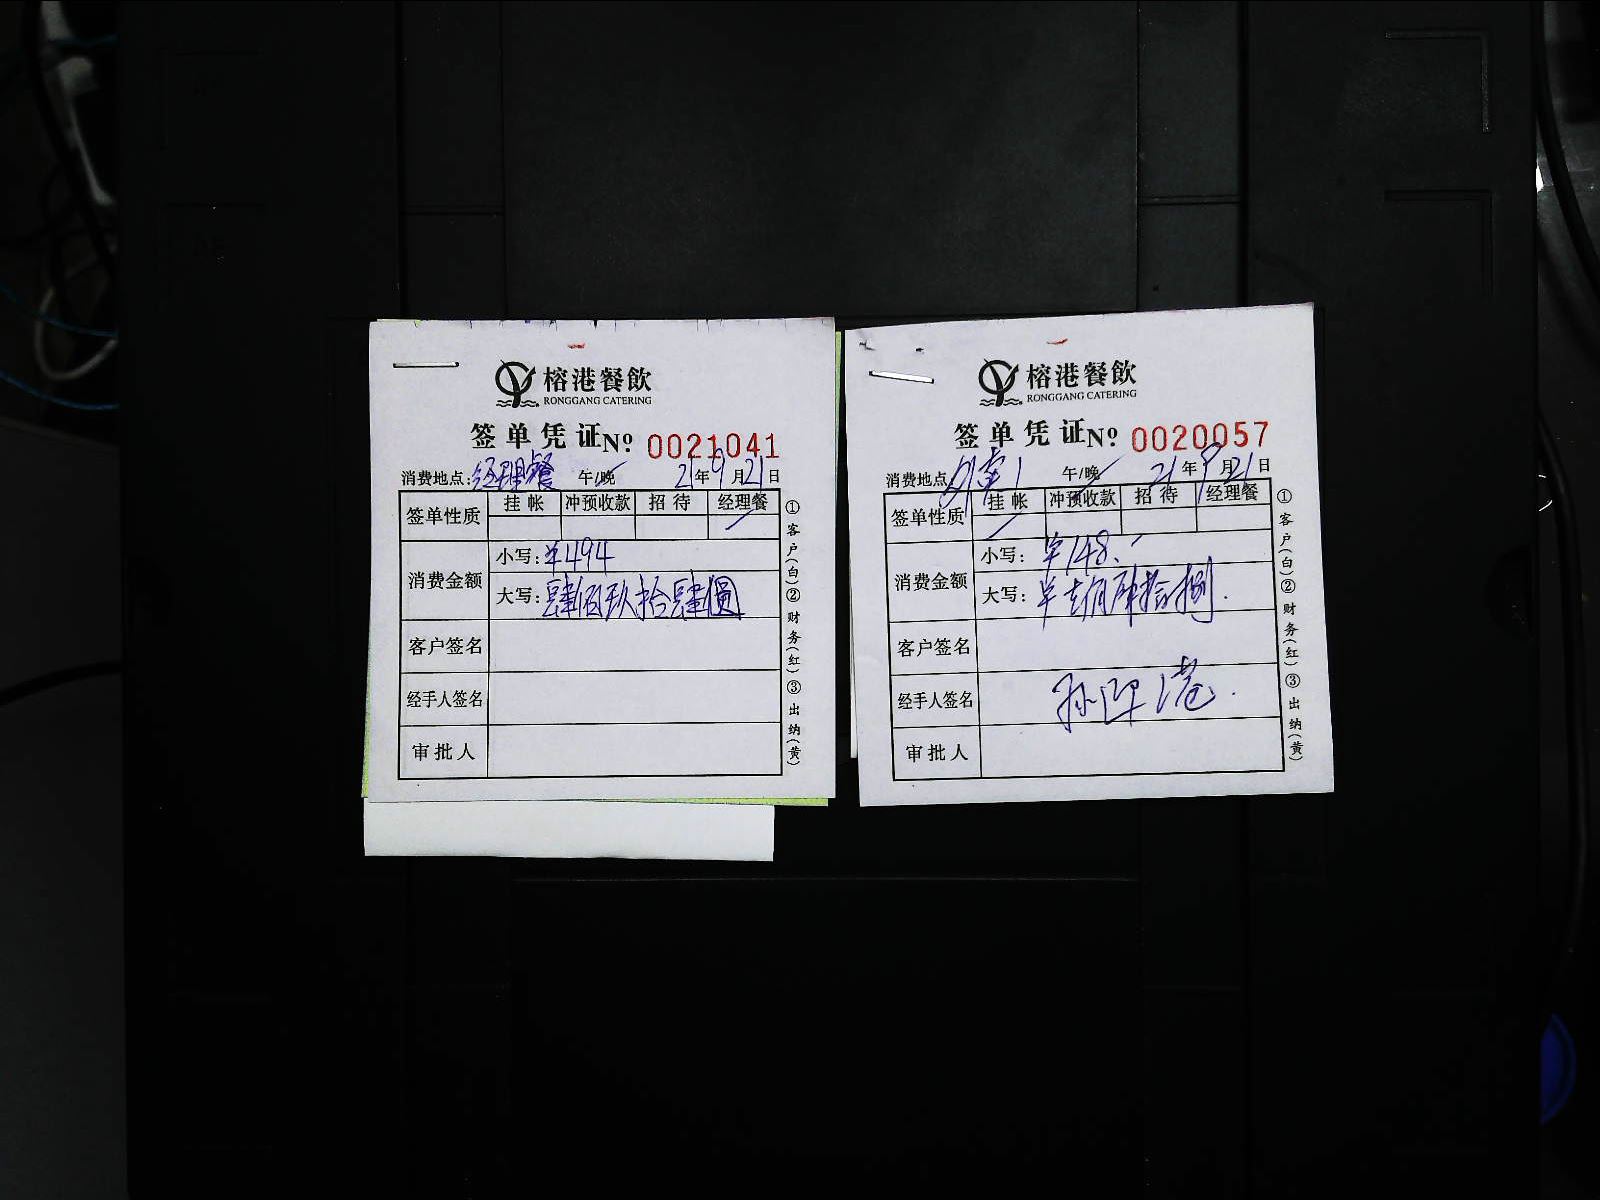 榕港餐飲
RONGGANG CATERING
签单凭证 Nº 0021041
消费地点:经理餐 午/晚 21年9月21日
签单性质 挂帐 冲预收款 招待 经理餐
消费金额 小写:¥494
大写:肆佰玖拾肆圆
客户签名
经手人签名
审批人
①客户(白)②财务(红)③出纳(黄)
榕港餐飲
RONGGANG CATERING
签单凭证 Nº 0020057
消费地点 午/晚 21年9月21日
签单性质 挂帐 冲预收款 招待 经理餐
消费金额 小写:¥148.
大写:¥壹佰肆拾捌.
客户签名
经手人签名 孙 港.
审批人
①客户(白)②财务(红)③出纳(黄)